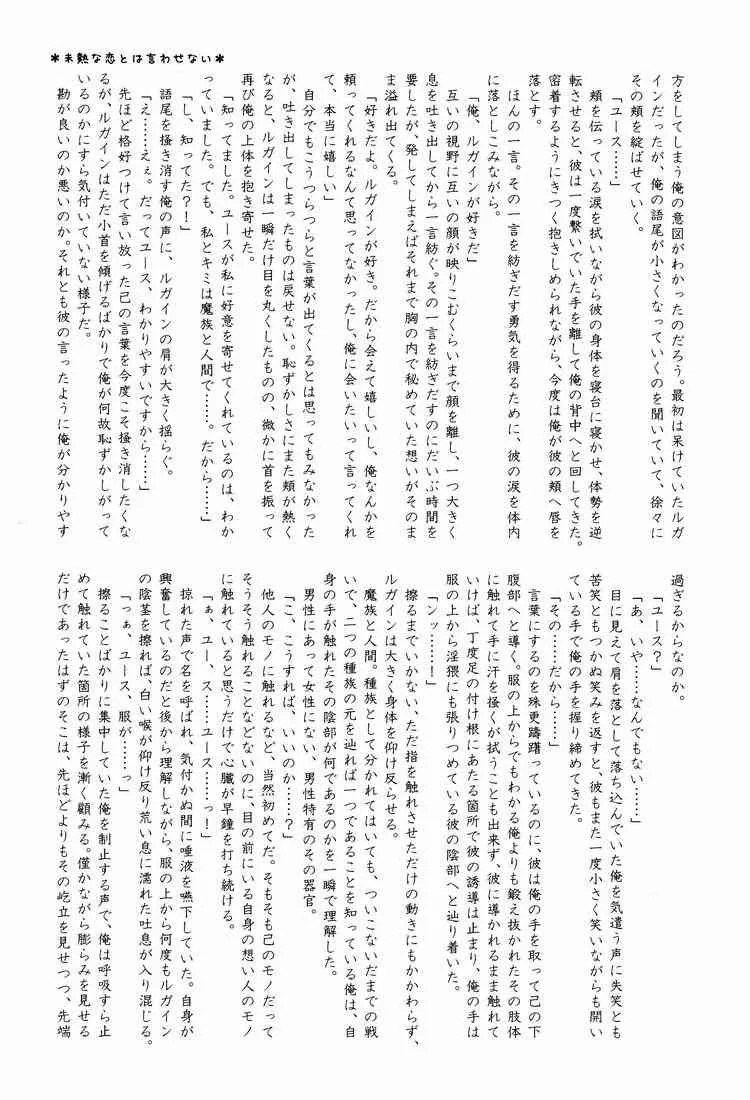 ＊未熟な恋とは言わせない＊
方をしてしまう俺の意図がわかったのだろう。最初は呆けていたルガ
インだったが、俺の語尾が小さくなっていくのを聞いていて、徐々に
その頬を綻ばせていく。
「ユース……」
頬を伝っている涙を拭いながら彼の身体を寝台に寝かせ、体勢を逆
転させると、彼は一度繋いでいた手を離して俺の背中へと回してきた。
密着するようにきつく抱きしめられながら、今度は俺が彼の頬へ唇を
落とす。
ほんの一言。その一言を紡ぎだす勇気を得るために、彼の涙を体内
に落としこみながら。
「俺、ルガインが好きだ」
互いの視野に互いの顔が映りこむくらいまで顔を離し、一つ大きく
息を吐き出してから一言紡ぐ。その一言を紡ぎだすのにだいぶ時間を
要したが、発してしまえばそれまで胸の内で秘めていた想いがそのま
ま溢れ出てくる。
「好きだよ。ルガインが好き。だから会えて嬉しいし、俺なんかを
頼ってくれるなんて思ってなかったし、俺に会いたいって言ってくれ
て、本当に嬉しい」
自分でもこうつらつらと言葉が出てくるとは思ってもみなかった
が、吐き出してしまったものは戻せない。恥ずかしさにまた頬が熱く
なると、ルガインは一瞬だけ目を丸くしたものの、微かに首を振って
再び俺の上体を抱き寄せた。
「知ってました。ユースが私に好意を寄せてくれているのは、わか
っていました。でも、私とキミは魔族と人間で……。だから……」
「し、知ってた？！」
語尾を掻き消す俺の声に、ルガインの肩が大きく揺らぐ。
「え……えぇ。だってユース、わかりやすいですから……」
先ほど格好つけて言い放った己の言葉を今度こそ掻き消したくな
るが、ルガインはただ小首を傾げるばかりで俺が何故恥ずかしがって
いるのかにすら気付いていない様子だ。
勘が良いのか悪いのか。それとも彼の言ったように俺が分かりやす
過ぎるからなのか。
「ユース？」
「あ、いや……なんでもない……」
目に見えて肩を落として落ち込んでいた俺を気遣う声に失笑とも
苦笑ともつかぬ笑みを返すと、彼もまた一度小さく笑いながらも開い
ている手で俺の手を握り締めてきた。
「その……だから……」
言葉にするのを殊更躊躇っているのに、彼は俺の手を取って己の下
腹部へと導く。服の上からでもわかる俺よりも鍛え抜かれたその肢体
に触れて手に汗を掻くが拭うことも出来ず、彼に導かれるまま触れて
いけば、丁度足の付け根にあたる箇所で彼の誘導は止まり、俺の手は
服の上から淫猥にも張りつめている彼の陰部へと辿り着いた。
「ンッ……！」
擦るまでいかない、ただ指を触れさせただけの動きにもかかわらず、
ルガインは大きく身体を仰け反らせる。
魔族と人間。種族として分かれてはいても、ついこないだまでの戦
いで、二つの種族の元を辿れば一つであることを知っている俺は、自
身の手が触れたその陰部が何であるのかを一瞬で理解した。
男性にあって女性にない、男性特有のその器官。
「こ、こうすれば、いいのか……？」
他人のモノに触れるなど、当然初めてだ。そもそも己のモノだって
そうそう触れることなどないのに、目の前にいる自身の想い人のモノ
に触れていると思うだけで心臓が早鐘を打ち続ける。
「ぁ、ユー、ス……ユース……っ！」
掠れた声で名を呼ばれ、気付かぬ間に唾液を嚥下していた。自身が
興奮しているのだと後から理解しながら、服の上から何度もルガイン
の陰茎を擦れば、白い喉が仰け反り荒い息に濡れた吐息が入り混じる。
「っぁ、ユース、服が……っ」
擦ることばかりに集中していた俺を制止する声で、俺は呼吸すら止
めて触れていた箇所の様子を漸く顧みる。僅かながら膨らみを見せる
だけであったはずのそこは、先ほどよりもその屹立を見せつつ、先端